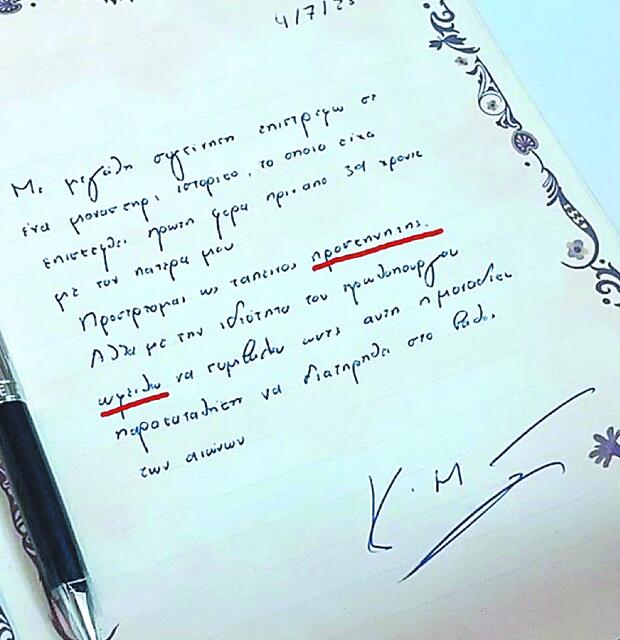 Με μεγάλη συγκίνηση επιστρέφω σε
ένα μοναστήρι ιστορικό, το οποίο είχα
επισκεφθεί πρώτη φορά πριν από χρόνια
με τον πατέρα μου
Προσέρχομαι ως ταπεινός προσκηνητής.
Αλλά με την ιδιότητα του πρωθυπουργού
ωφείλω να συμβάλω ώστε αυτή η μοναδική
παρακαταθήκη να διατηρηθεί στο βάθος
των αιώνων
Κ. Μ